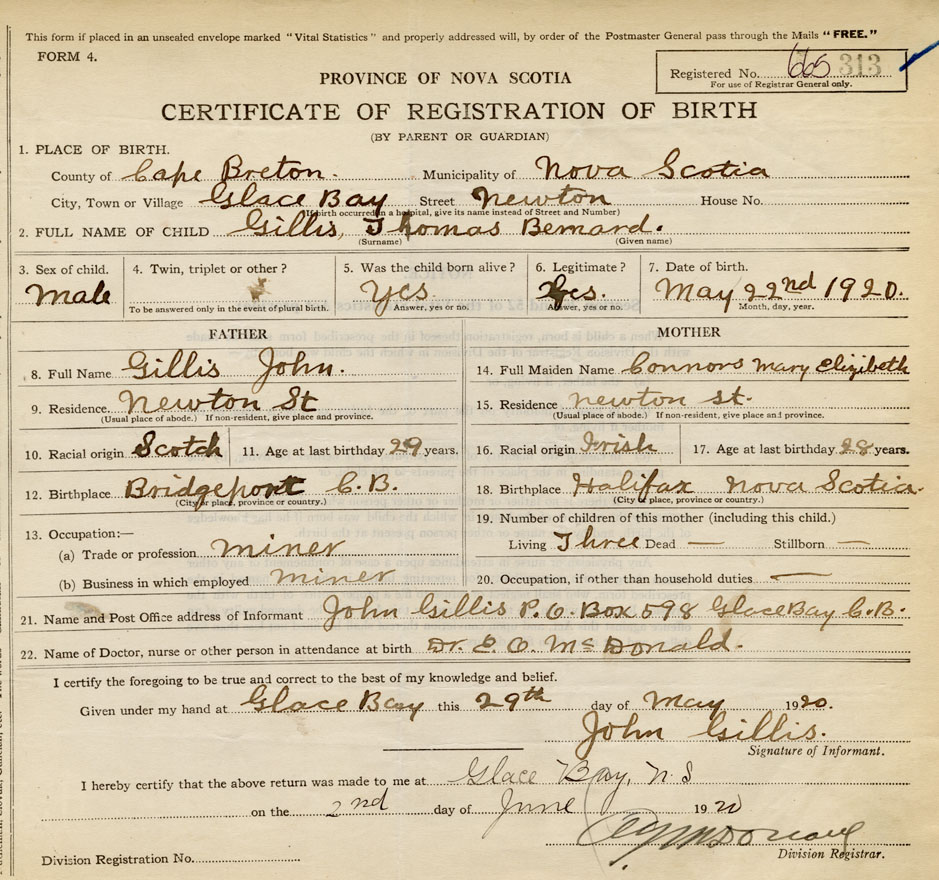 This form if placed in an unsealed envelope marked "Vital Statistics" and properly addressed will, by order of the Postmaster General pass through the Mails "FREE."
FORM 4.
Registered No. 665 313
For use of Registrar General only.
PROVINCE OF NOVA SCOTIA
CERTIFICATE OF REGISTRATION OF BIRTH
(BY PARENT OR GUARDIAN)
1. PLACE OF BIRTH.
County of Cape Breton. Municipality of Nova Scotia
City, Town or Village Glace Bay Street Newton House No.
(If birth occurred in a hospital, give its name instead of Street and Number)
2. FULL NAME OF CHILD Gillis, Thomas Bernard.
(Surname) (Given name)
3. Sex of child. 4. Twin, triplet or other? 5. Was the child born alive? 6. Legitimate? 7. Date of birth.
Male Yes Yes. May 22nd 1920.
To be answered only in the event of plural birth. Answer, yes or no. Answer, yes or no. Month, day, year.
FATHER
8. Full Name Gillis John.
9. Residence. Newton St
(Usual place of abode.) If non-resident, give place and province.
10. Racial origin Scotch 11. Age at last birthday 29 years.
12. Birthplace Bridgeport C.B.
(City or place, province or country.)
13. Occupation:—
(a) Trade or profession miner
(b) Business in which employed miner
MOTHER
14. Full Maiden Name Connors Mary Elizibeth
15. Residence newton st.
(Usual place of abode.) If non-resident, give place and province.
16. Racial origin Irish 17. Age at last birthday 28 years.
18. Birthplace Halifax Nova Scotia.
(City or place, province or country.)
19. Number of children of this mother (including this child.)
Living Three Dead — Stillborn —
20. Occupation, if other than household duties —
21. Name and Post Office address of Informant John Gillis P.O. Box 598 Glace Bay C.B.
22. Name of Doctor, nurse or other person in attendance at birth Dr. E. O. McDonald.
I certify the foregoing to be true and correct to the best of my knowledge and belief.
Given under my hand at Glace Bay this 29th day of May 1920.
John Gillis.
Signature of Informant.
I hereby certify that the above return was made to me at Glace Bay, N.S
on the 2nd day of June 1920
Division Registrar.
Division Registration No.